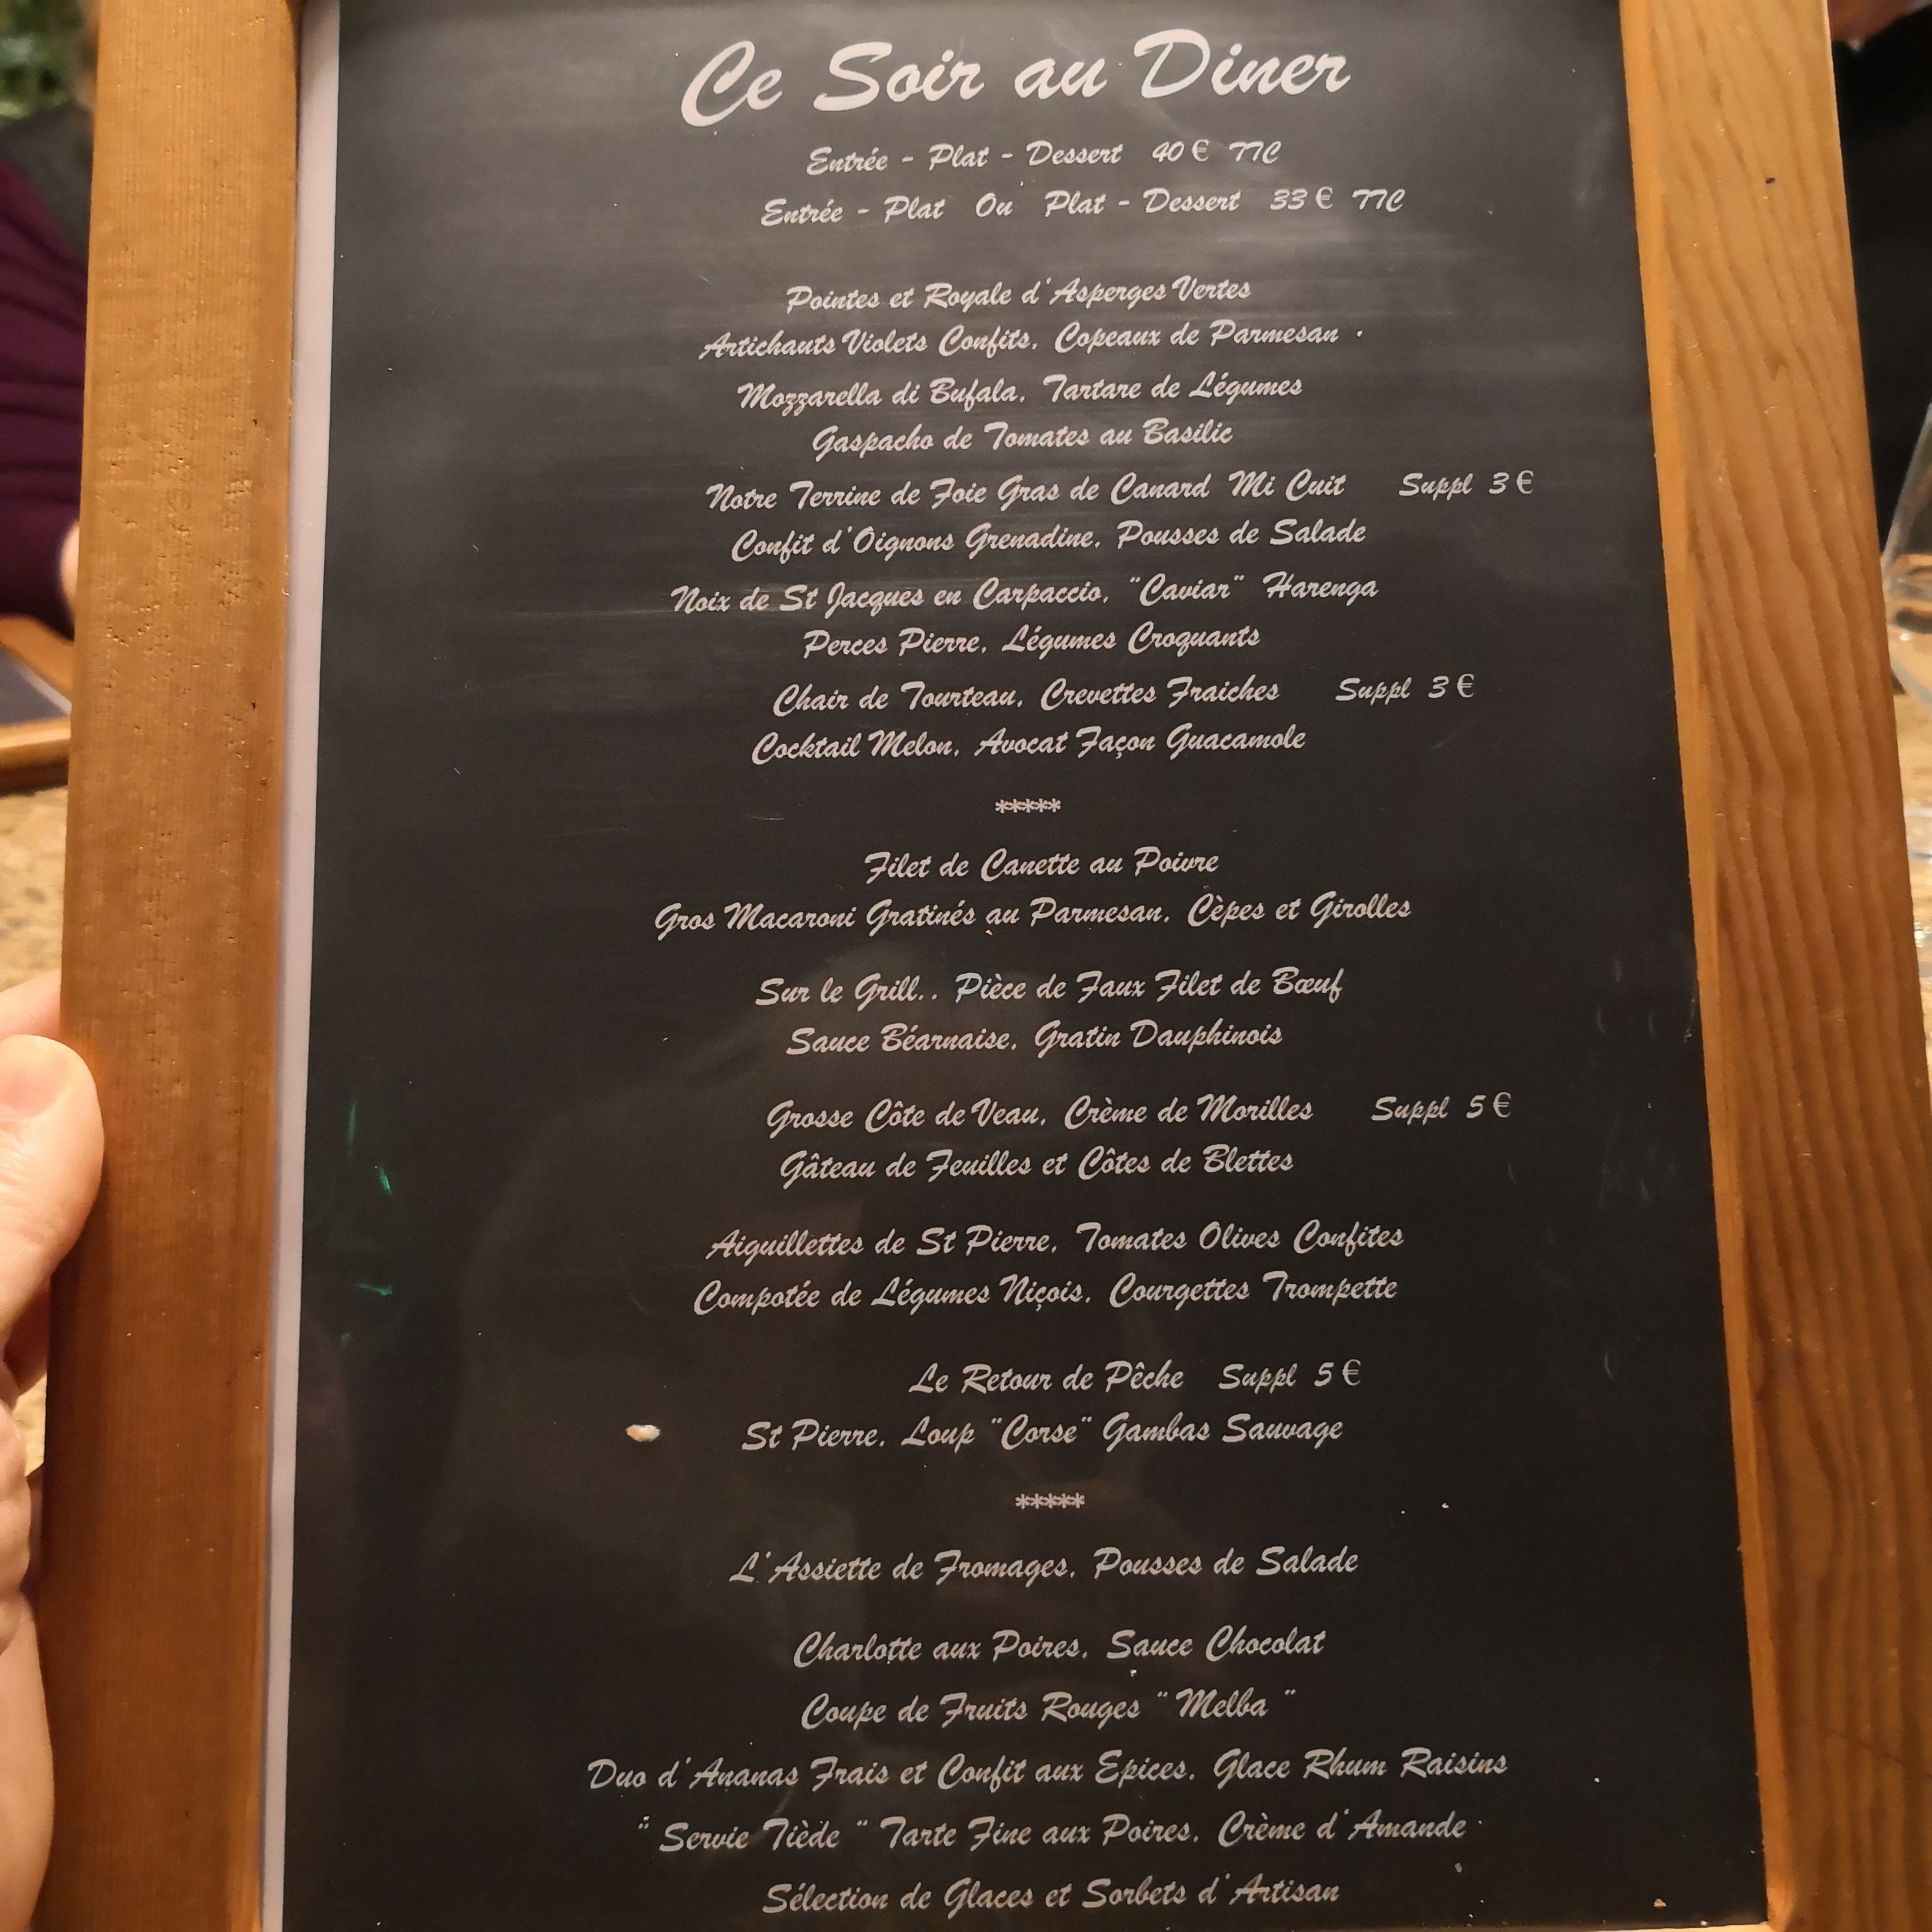 Ce Soir au Diner
Entrée - Plat - Dessert 40 € TTC
Entrée - Plat Ou Plat - Dessert 33 € TTC
Pointes et Royale d'Asperges Vertes
Artichauts Violets Confits, Copeaux de Parmesan
Mozzarella di Bufala, Tartare de Légumes
Gaspacho de Tomates au Basilic
Notre Terrine de Foie Gras de Canard Mi Cuit Suppl 3 €
Confit d'Oignons Grenadine, Pousses de Salade
Noix de St Jacques en Carpaccio, "Caviar" Harenga
Perces Pierre, Légumes Croquants
Chair de Tourteau, Crevettes Fraiches Suppl 3 €
Cocktail Melon, Avocat Façon Guacamole
*****
Filet de Canette au Poivre
Gros Macaroni Gratinés au Parmesan, Cèpes et Girolles
Sur le Grill.. Pièce de Faux Filet de Bœuf
Sauce Béarnaise, Gratin Dauphinois
Grosse Côte de Veau, Crème de Morilles Suppl 5 €
Gâteau de Feuilles et Côtes de Blettes
Aiguillettes de St Pierre, Tomates Olives Confites
Compotée de Légumes Niçois, Courgettes Trompette
Le Retour de Pêche Suppl 5 €
St Pierre, Loup "Corse" Gambas Sauvage
*****
L'Assiette de Fromages, Pousses de Salade
Charlotte aux Poires, Sauce Chocolat
Coupe de Fruits Rouges " Melba "
Duo d'Ananas Frais et Confit aux Epices, Glace Rhum Raisins
" Servie Tiède " Tarte Fine aux Poires, Crème d'Amande
Sélection de Glaces et Sorbets d'Artisan